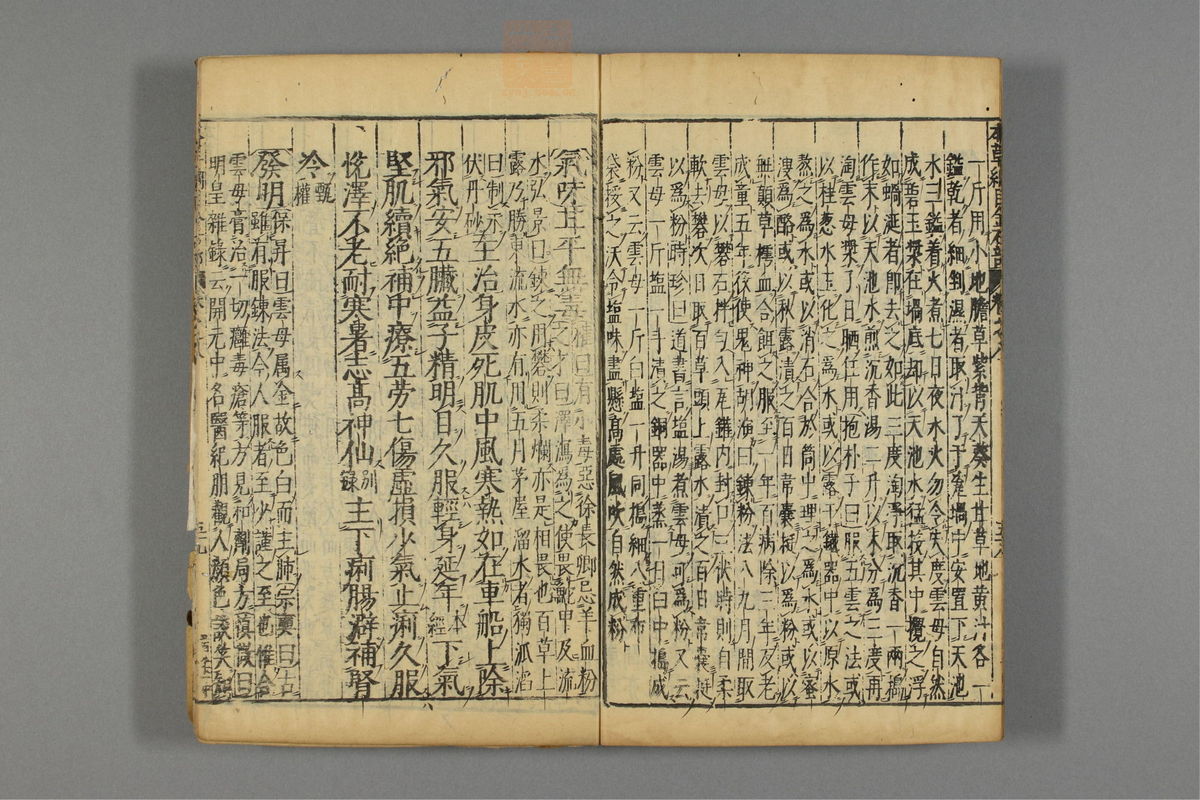 一斤用小地膽草紫背天葵生甘草地黃汁各一
鎰乾者細剉濕者取汁了于瓷堝中安置下天池
水三鎰着火煮七日夜水火勿令失度雲母自然
成碧玉漿在堝底却以天池水猛投其中攪之浮
如蝸涎者即去之如此三度淘淨取沉香一兩擣
作末以天池水煎沉香湯二升以末分為三度再
淘雲母漿了日晒任用抱朴子曰服五雲之法或
以桂葱水玉化之為水或以露于鐵器中以原水
熬之為水或以消石合於筒中埋之為水或以蜜
溲為酪或以秋露漬之百日韋囊挻以為粉或以
無顛草樗血合餌之服至一年百病除三年反老
成童五年役使鬼神胡演曰鍊粉法八九月間取
雲母以礬石拌勻入瓦罐內封口三伏時則自柔
軟去礬次日取百草頭上露水漬之百日韋囊挻
以為粉時珍曰道書言塩湯煮雲母可為粉又云
雲母一斤塩一斗漬之銅器中蒸一日臼中搗成
粉又云雲母一斤白塩一升同搗細入重布
袋挼之沃令塩味盡懸高處風吹自然成粉
氣味甘平無毒權曰有小毒惡徐長卿忌羊血粉
之才曰澤瀉為之使畏鼉甲及流
水弘景曰鍊之用礬則柔爛亦是相畏也百草上
露乃勝東流水亦有用五月茅屋溜水者獨孤滔
曰制汞
伏丹砂主治身皮死肌中風寒熱如在車船上除
邪氣安五臟益子精明目久服輕身延年本經下氣
堅肌續絕補中療五勞七傷虛損少氣止痢久服
悅澤不老耐寒暑志高神仙別錄主下痢腸澼補腎
冷甄權
發明保昇曰雲母属金故色白而主肺宗奭曰古
雖有服鍊法今人服者至少謹之至也惟合
雲母膏治一切癰毒瘡等方見和劑局方慎微曰
明皇雜錄云開元中名醫紀朋觀人顏色談笑